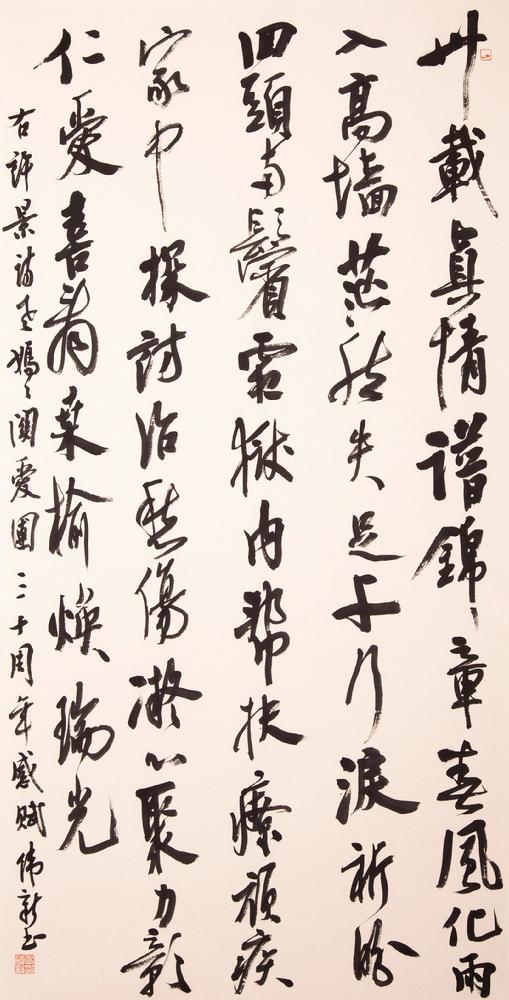 卅載真情譜錦章春風化雨
入高墻茫然失足千行淚祈盼
回頭兩鬢霜獄内幫扶療頑疾
家中探訪治傷凝心聚力彰
仁愛喜看桑榆煥瑞光
右許景老媽々關愛團三十周年感賦偉新書